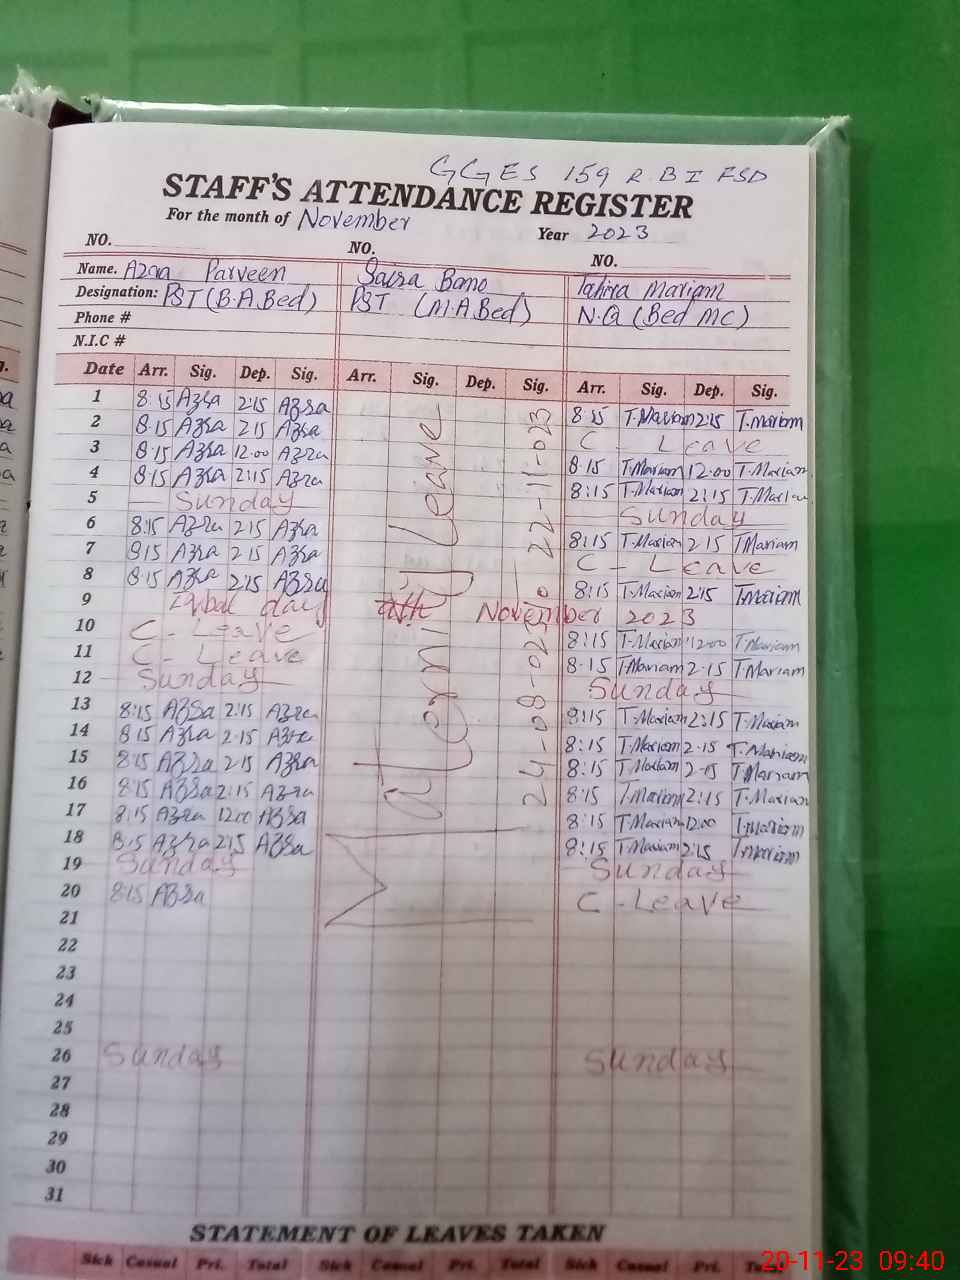 GGES 159 R.B I FSD
STAFF'S ATTENDANCE REGISTER
For the month of November Year 2023
NO. NO. NO.
Name. Azra Parveen Saira Bano Tahira Mariam
Designation: PST (B.A.Bed) PST (M.A.Bed) N.Q (Bed MC)
Phone #
N.I.C #
Date Arr. Sig. Dep. Sig. Arr. Sig. Dep. Sig. Arr. Sig. Dep. Sig.
Maternity Leave
24-08-023 to 22-11-023
1 8:15 Azra 2:15 Azra 8:15 T.Mariam 2:15 T.mariam
2 8:15 Azra 2:15 Azra C - Leave
3 8:15 Azra 12:00 Azra 8:15 T.Mariam 12:00 T.Mariam
4 8:15 Azra 2:15 Azra 8:15 T.Mariam 2:15 T.Mariam
5 Sunday Sunday
6 8:15 Azra 2:15 Azra 8:15 T.Mariam 2:15 T.Mariam
7 8:15 Azra 2:15 Azra C - Leave
8 8:15 Azra 2:15 Azra 8:15 T.Mariam 2:15 T.Mariam
9 Iqbal day 9th November 2023
10 C - Leave 8:15 T.Mariam 12:00 T.Mariam
11 C - Leave 8:15 T.Mariam 2:15 T.Mariam
12 Sunday Sunday
13 8:15 Azra 2:15 Azra 8:15 T.Mariam 2:15 T.Mariam
14 8:15 Azra 2:15 Azra 8:15 T.Mariam 2:15 T.Mariam
15 8:15 Azra 2:15 Azra 8:15 T.Mariam 2:15 T.Mariam
16 8:15 Azra 2:15 Azra 8:15 T.Mariam 2:15 T.Mariam
17 8:15 Azra 12:00 Azra 8:15 T.Mariam 12:00 T.Mariam
18 8:15 Azra 2:15 Azra 8:15 T.Mariam 2:15 T.Mariam
19 Sunday Sunday
20 8:15 Azra C - Leave
21
22
23
24
25
26 Sunday Sunday
27
28
29
30
31
STATEMENT OF LEAVES TAKEN
Sick Casual Pri. Total Sick Casual Pri. Total Sick Casual Pri. Total
20-11-23 09:40